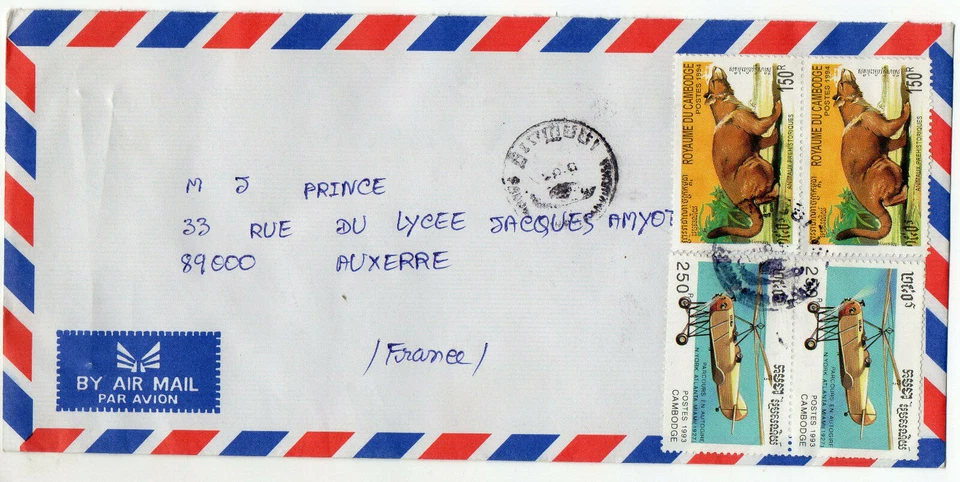 M J PRINCE
33 RUE DU LYCEE JACQUES AMYOT
89000 AUXERRE
/France/
BY AIR MAIL
PAR AVION
ROYAUME DU CAMBODGE
POSTES 1994
150R
ANIMAUX PREHISTORIQUES
ROYAUME DU CAMBODGE
POSTES 1994
150R
ANIMAUX PREHISTORIQUES
250R
PARCOURS EN AUTOGIRE
N.YORK.ATLANTA.MIAMI(1927)
POSTES 1993
CAMBODGE
២៥០៛
250R
PARCOURS EN AUTOGIRE
N.YORK.ATLANTA.MIAMI(1927)
POSTES 1993
CAMBODGE
២៥០៛